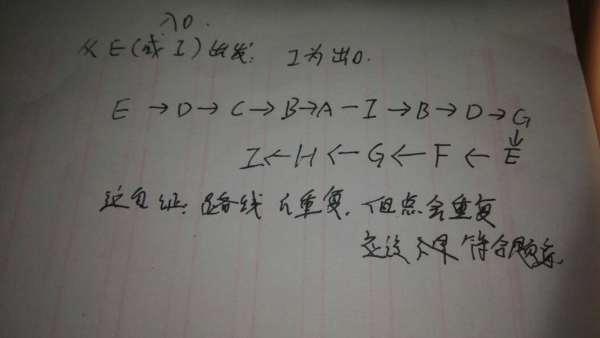 入口.
从E(或I)出发. I为出口.
E→D→C→B→A-I→B→D→G
↓
I←H←G←F←E
这包证:路线不重复.但点会重复
应该是符合题意.